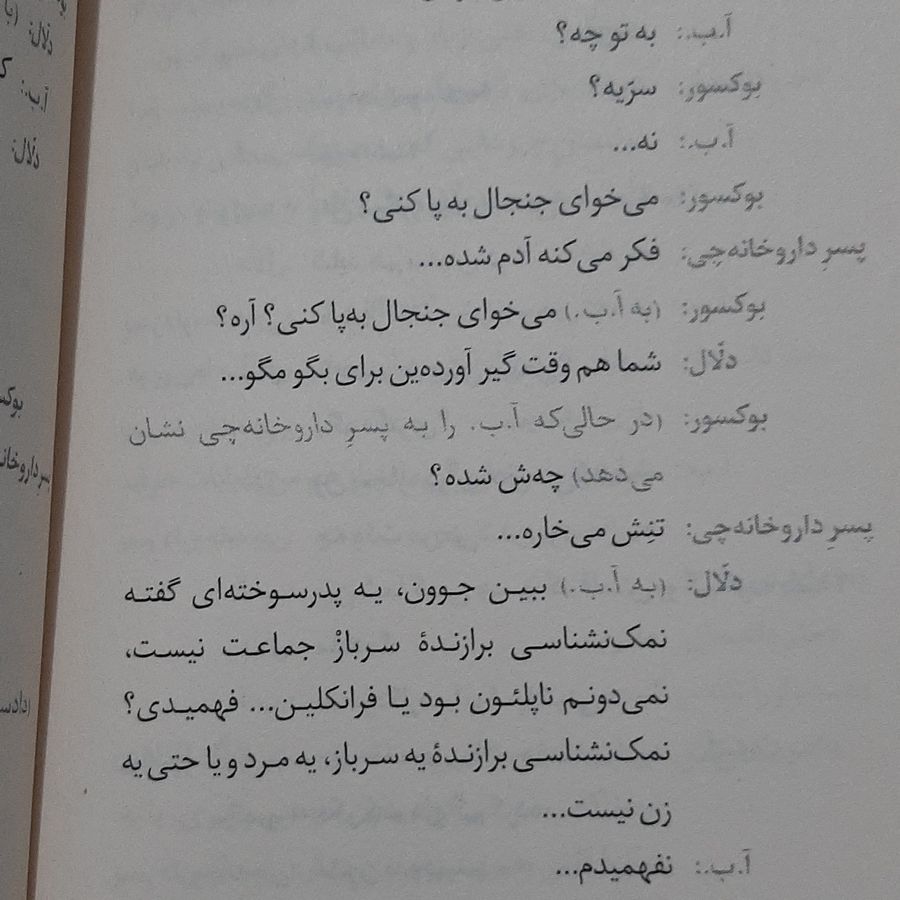 آ.ب.: به تو چه؟
بوکسور: سرّیه؟
آ.ب.: نه...
بوکسور: می‌خوای جنجال به پا کنی؟
پسرِ داروخانه‌چی: فکر می‌کنه آدم شده...
بوکسور: (به آ.ب.) می‌خوای جنجال به‌پا کنی؟ آره؟
دلّال: شما هم وقت گیر آورده‌ین برای بگو مگو...
بوکسور: (در حالی‌که آ.ب. را به پسرِ داروخانه‌چی نشان
می‌دهد) چه‌ش شده؟
پسرِ داروخانه‌چی: تنِش می‌خاره...
دلّال: (به آ.ب.) ببین جوون، یه پدرسوخته‌ای گفته
نمک‌نشناسی برازندهٔ سربازْ جماعت نیست،
نمی‌دونم ناپلئون بود یا فرانکلین... فهمیدی؟
نمک‌نشناسی برازندهٔ یه سرباز، یه مرد و یا حتی یه
زن نیست...
آ.ب.: نفهمیدم...
دلّال:
آ.ب.:
دلّال: